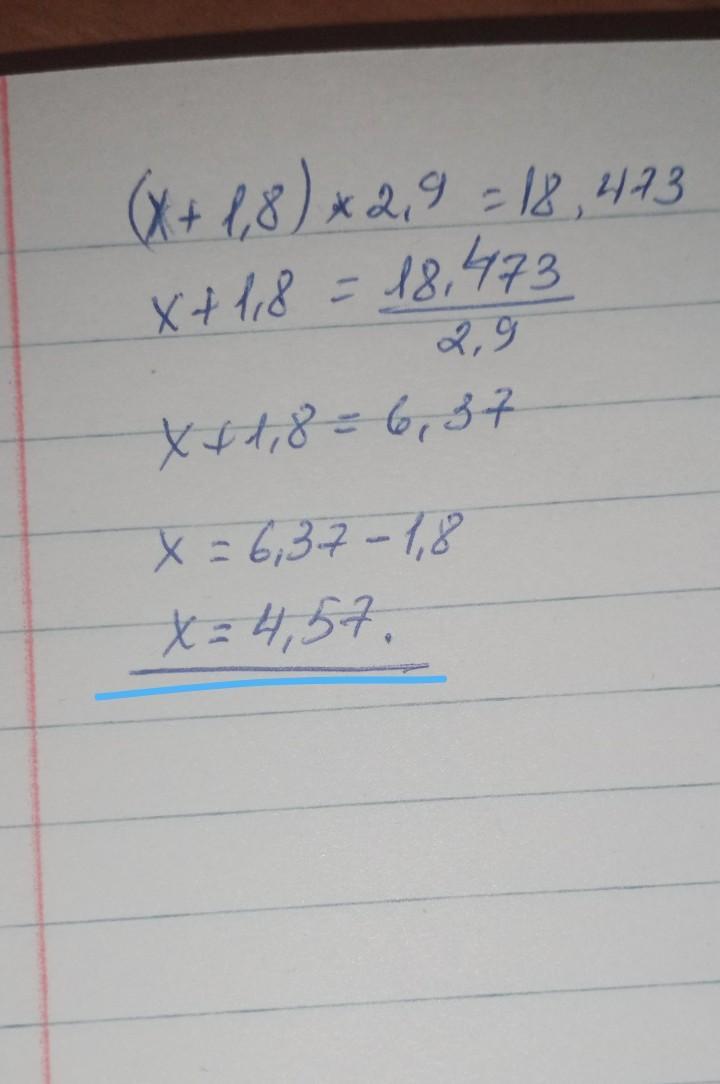 (x + 1,8) * 2,9 = 18,473
x + 1,8 = 18,473 / 2,9
x + 1,8 = 6,37
x = 6,37 - 1,8
x = 4,57.